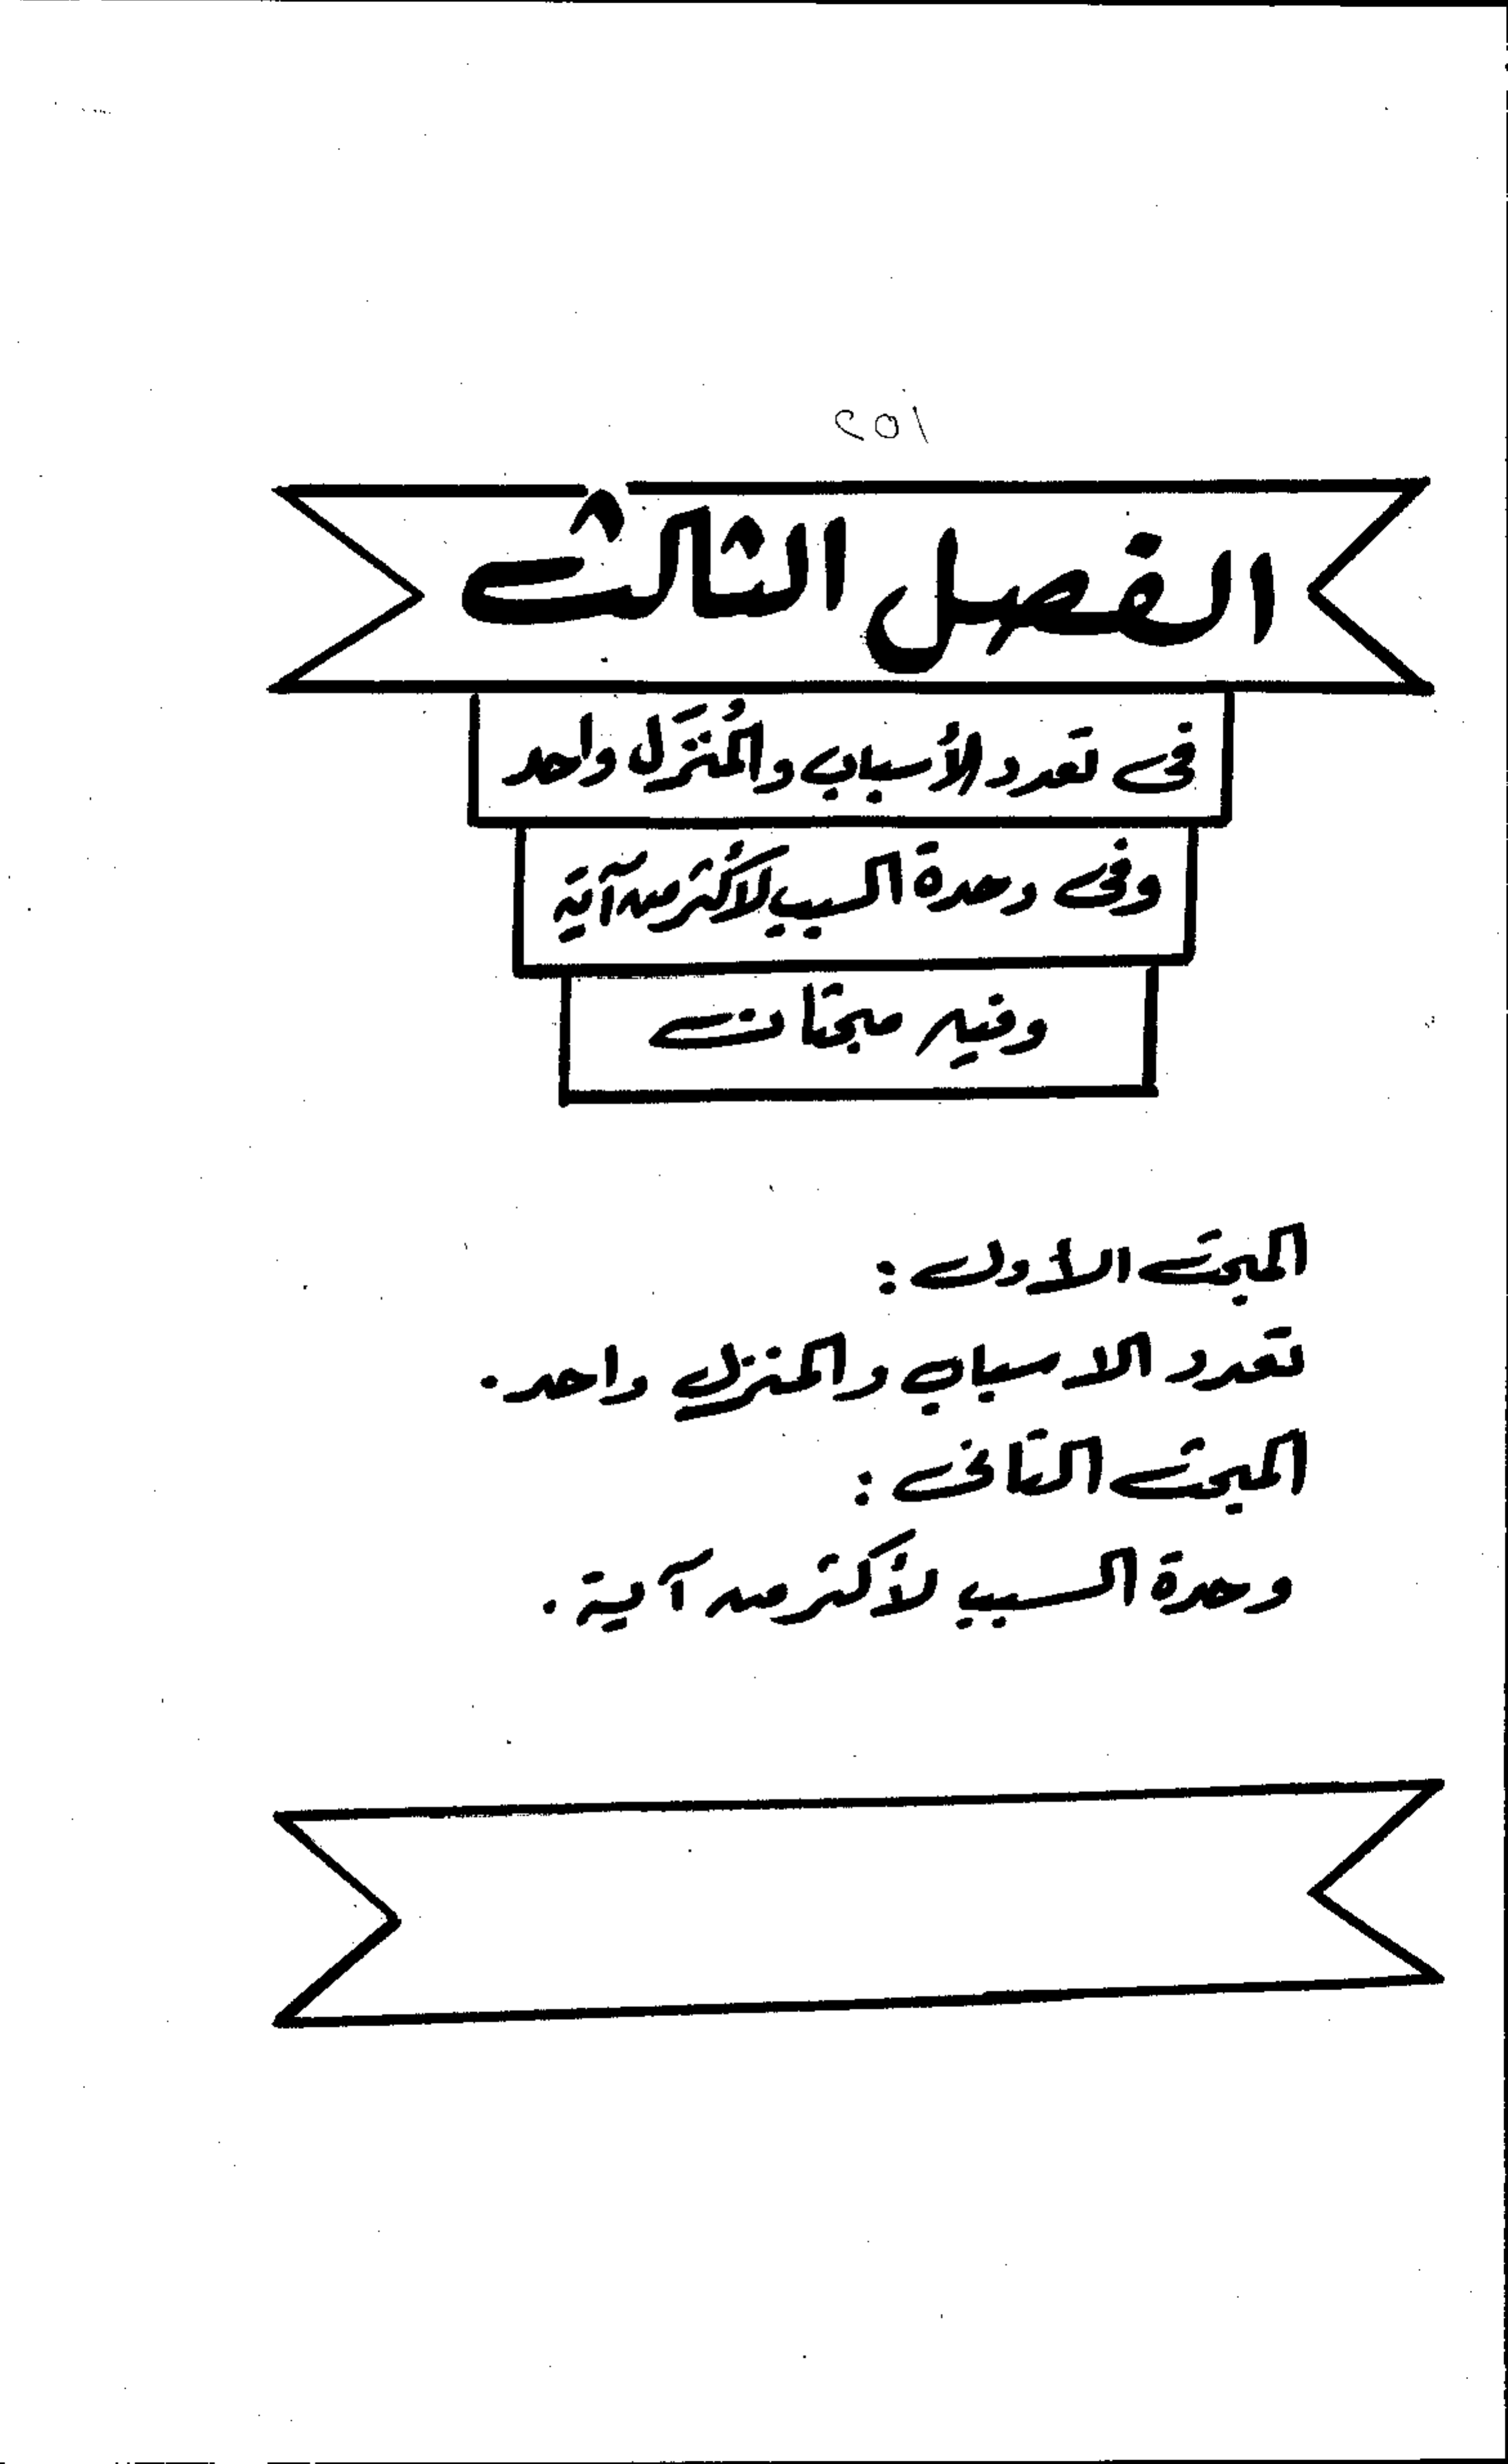 ١٥٢
الفصل الثالث
فى تعدد الأسباب والمُنَزَّل واحد
وفى وحدة السبب لأكثر من آية
وفيه مبحثان
المبحث الأول :
تعدد الاسباب والمنزل واحد .
المبحث الثانى :
وحدة السبب لأكثر من آية .